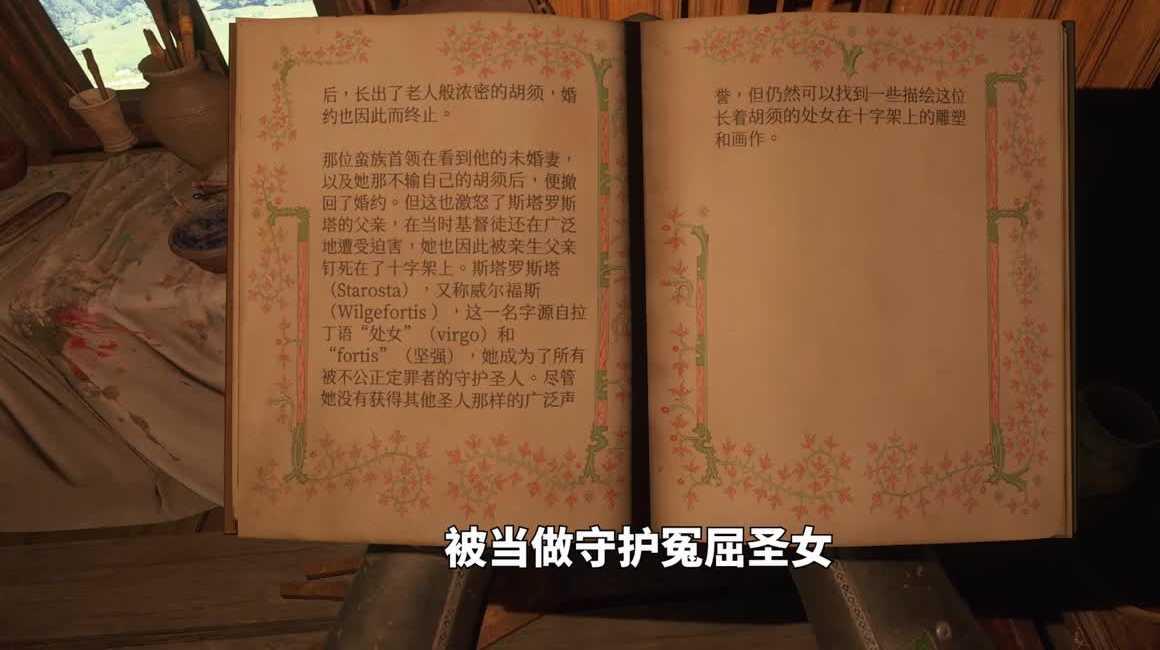 后，长出了老人般浓密的胡须，婚
约也因此而终止。
那位蛮族首领在看到他的未婚妻，
以及她那不输自己的胡须后，便撤
回了婚约。但这也激怒了斯塔罗斯
塔的父亲，在当时基督徒还在广泛
地遭受迫害，她也因此被亲生父亲
钉死在了十字架上。斯塔罗斯塔
（Starosta），又称威尔福斯
（Wilgefortis ），这一名字源自拉
丁语“处女”（virgo）和
“fortis”（坚强），她成为了所有
被不公正定罪者的守护圣人。尽管
她没有获得其他圣人那样的广泛声
誉，但仍然可以找到一些描绘这位
长着胡须的处女在十字架上的雕塑
和画作。
被当做守护冤屈圣女